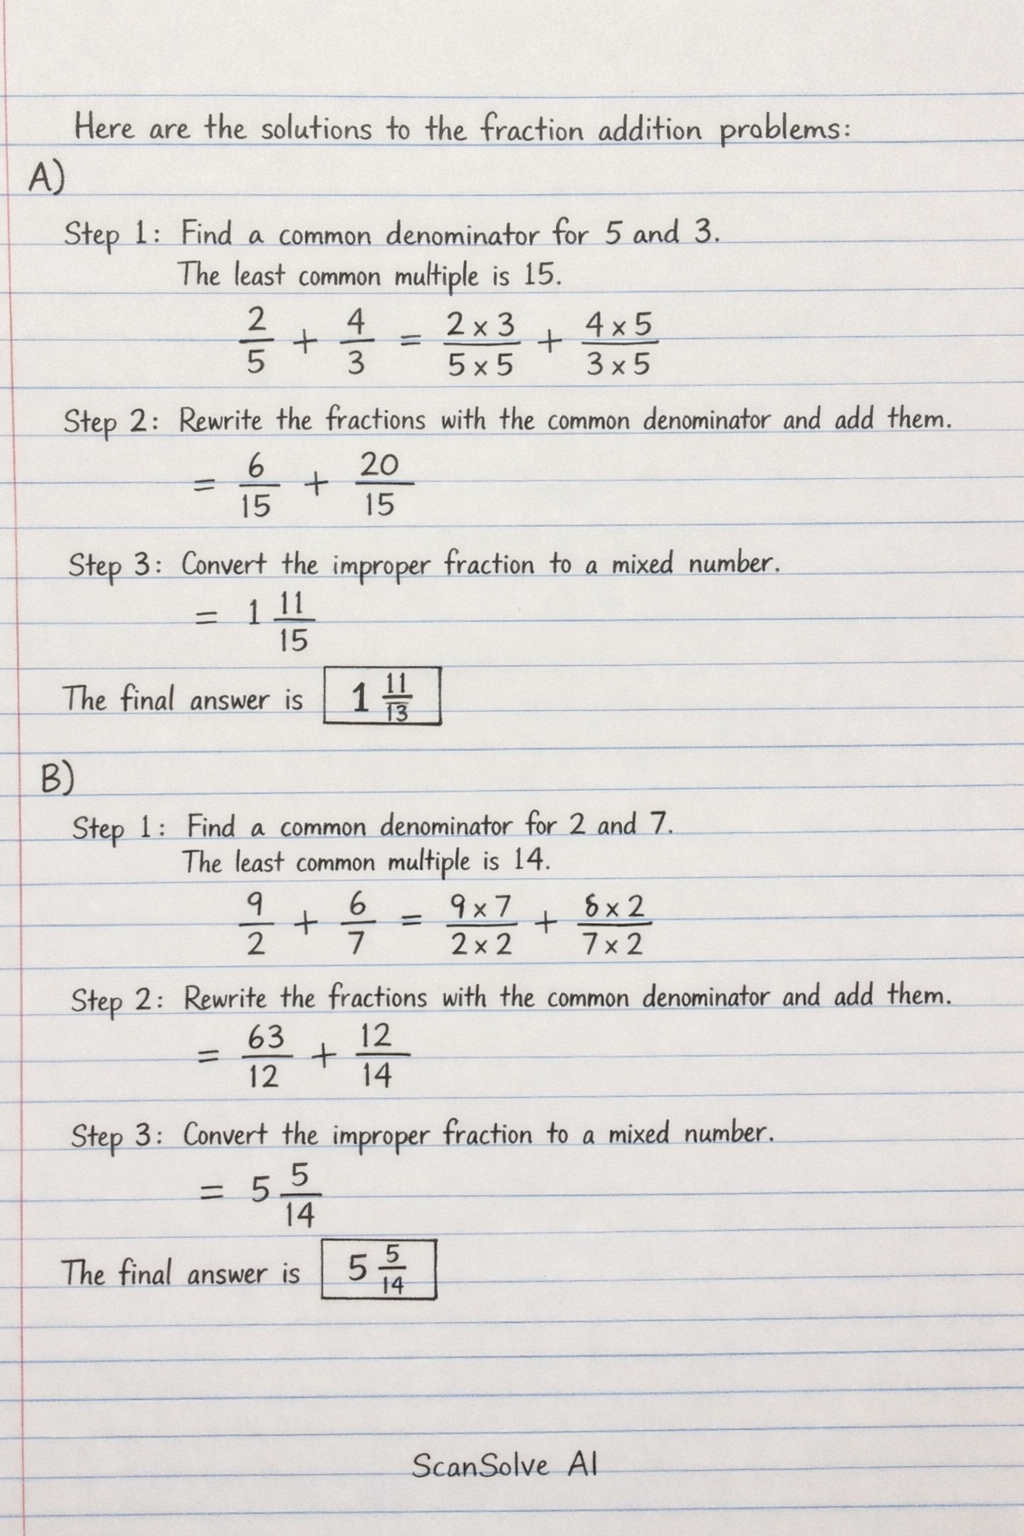 Here are the solutions to the fraction addition problems:
A)
Step 1: Find a common denominator for 5 and 3.
The least common multiple is 15.
2/5 + 4/3 = 2 x 3/5 x 5 + 4 x 5/3 x 5
Step 2: Rewrite the fractions with the common denominator and add them.
= 6/15 + 20/15
Step 3: Convert the improper fraction to a mixed number.
= 1 11/15
The final answer is 1 11/13
B)
Step 1: Find a common denominator for 2 and 7.
The least common multiple is 14.
9/2 + 6/7 = 9 x 7/2 x 2 + 8 x 2/7 x 2
Step 2: Rewrite the fractions with the common denominator and add them.
= 63/12 + 12/14
Step 3: Convert the improper fraction to a mixed number.
= 5 5/14
The final answer is 5 5/14
ScanSolve AI